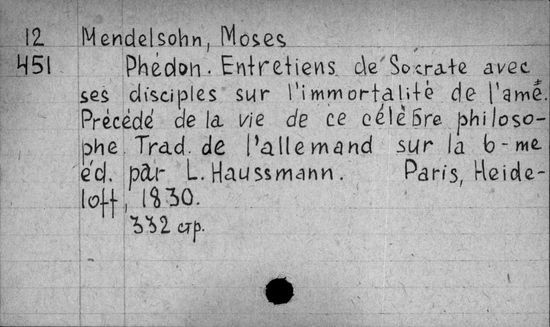 12 Mendelsohn, Moses
451 Phédon. Entretiens de Socrate avec
ses disciples sur l'immortalité de l'ame.
Précédé de la vie de ce célèbre philoso-
phe. Trad. de l'allemand sur la 6-me
éd. par L. Haussmann. Paris, Heide-
loff, 1830.
332 стр.